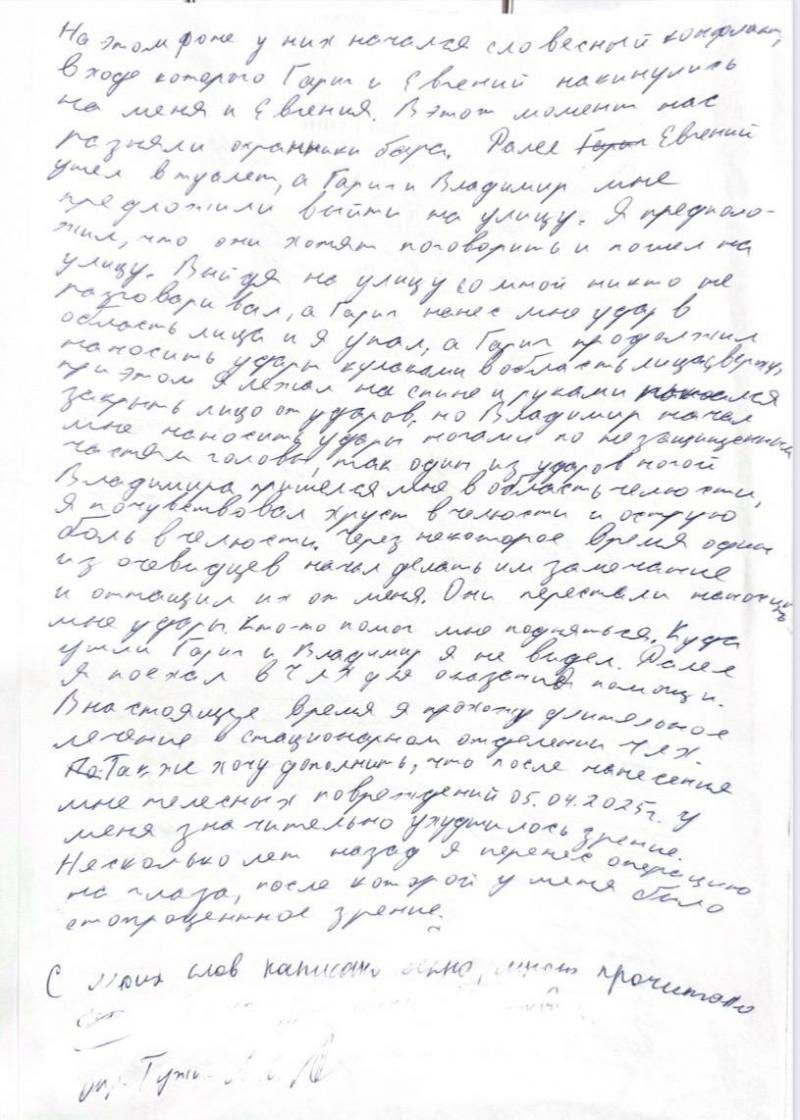 На этом фоне у них начался словесный конфликт,
в ходе которого Гарик и Евгений накинулись
на меня и Евгения. В этот момент нас
разняли охранники бара. Далее Гарик Евгений
ушел в туалет, а Гарик и Владимир мне
предложили выйти на улицу. Я предполо-
жил, что они хотят поговорить и пошел на
улицу. Выйдя на улицу со мной никто не
разговаривал, а Гарик нанес мне удар в
область лица и я упал, а Гарик продолжил
наносить удары кулаками в область лица сверху,
при этом я лежал на спине и руками
закрыть лицо от ударов, но Владимир начал
мне наносить удары ногами по незащищенным
частям головы, так один из ударов ногой
Владимира пришелся мне в область челюсти,
я почувствовал хруст в челюсти и острую
боль в челюсти. Через некоторое время один
из очевидцев начал делать им замечание
и оттащил их от меня. Они перестали наносить
мне удары. Кто-то помог мне подняться. Куда
ушли Гарик и Владимир я не видел. Далее
я поехал в ЧЛХ для оказания помощи.
В настоящее время я прохожу длительное
лечение в стационарном отделении ЧЛХ.
Так же хочу дополнить, что после нанесения
мне телесных повреждений 05.04.2025г. у
меня значительно ухудшилось зрение.
Несколько лет назад я перенес операцию
на глаза, после которой у меня было
стопроцентное зрение.
С моих слов написано верно, мною прочитано